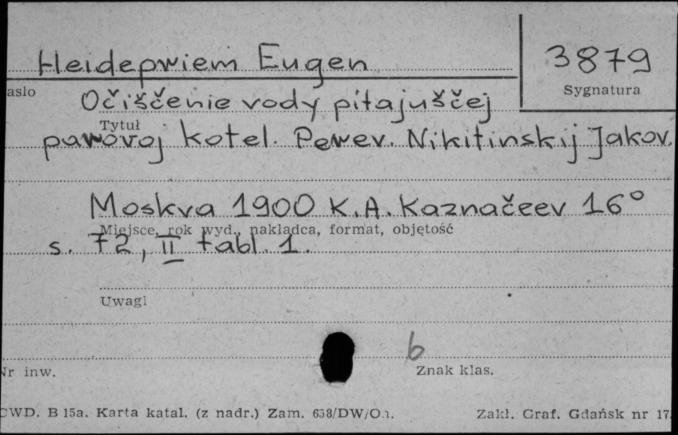 Heidepriem Eugen
3879
asło
Sygnatura
Očiščenie vody pitajuščej
Tytuł
parovoj kotel. Perev. Nikitinskij Jakov.
Moskva 1900 K.A. Kaznačeev 16°
Miejsce, rok wyd., nakładca, format, objętość
s. 72, II tabl. 1.
Uwagi
b
Nr inw.
Znak klas.
CWD. B 15a. Karta katal. (z nadr.) Zam. 658/DW/On.
Zakł. Graf. Gdańsk nr 17